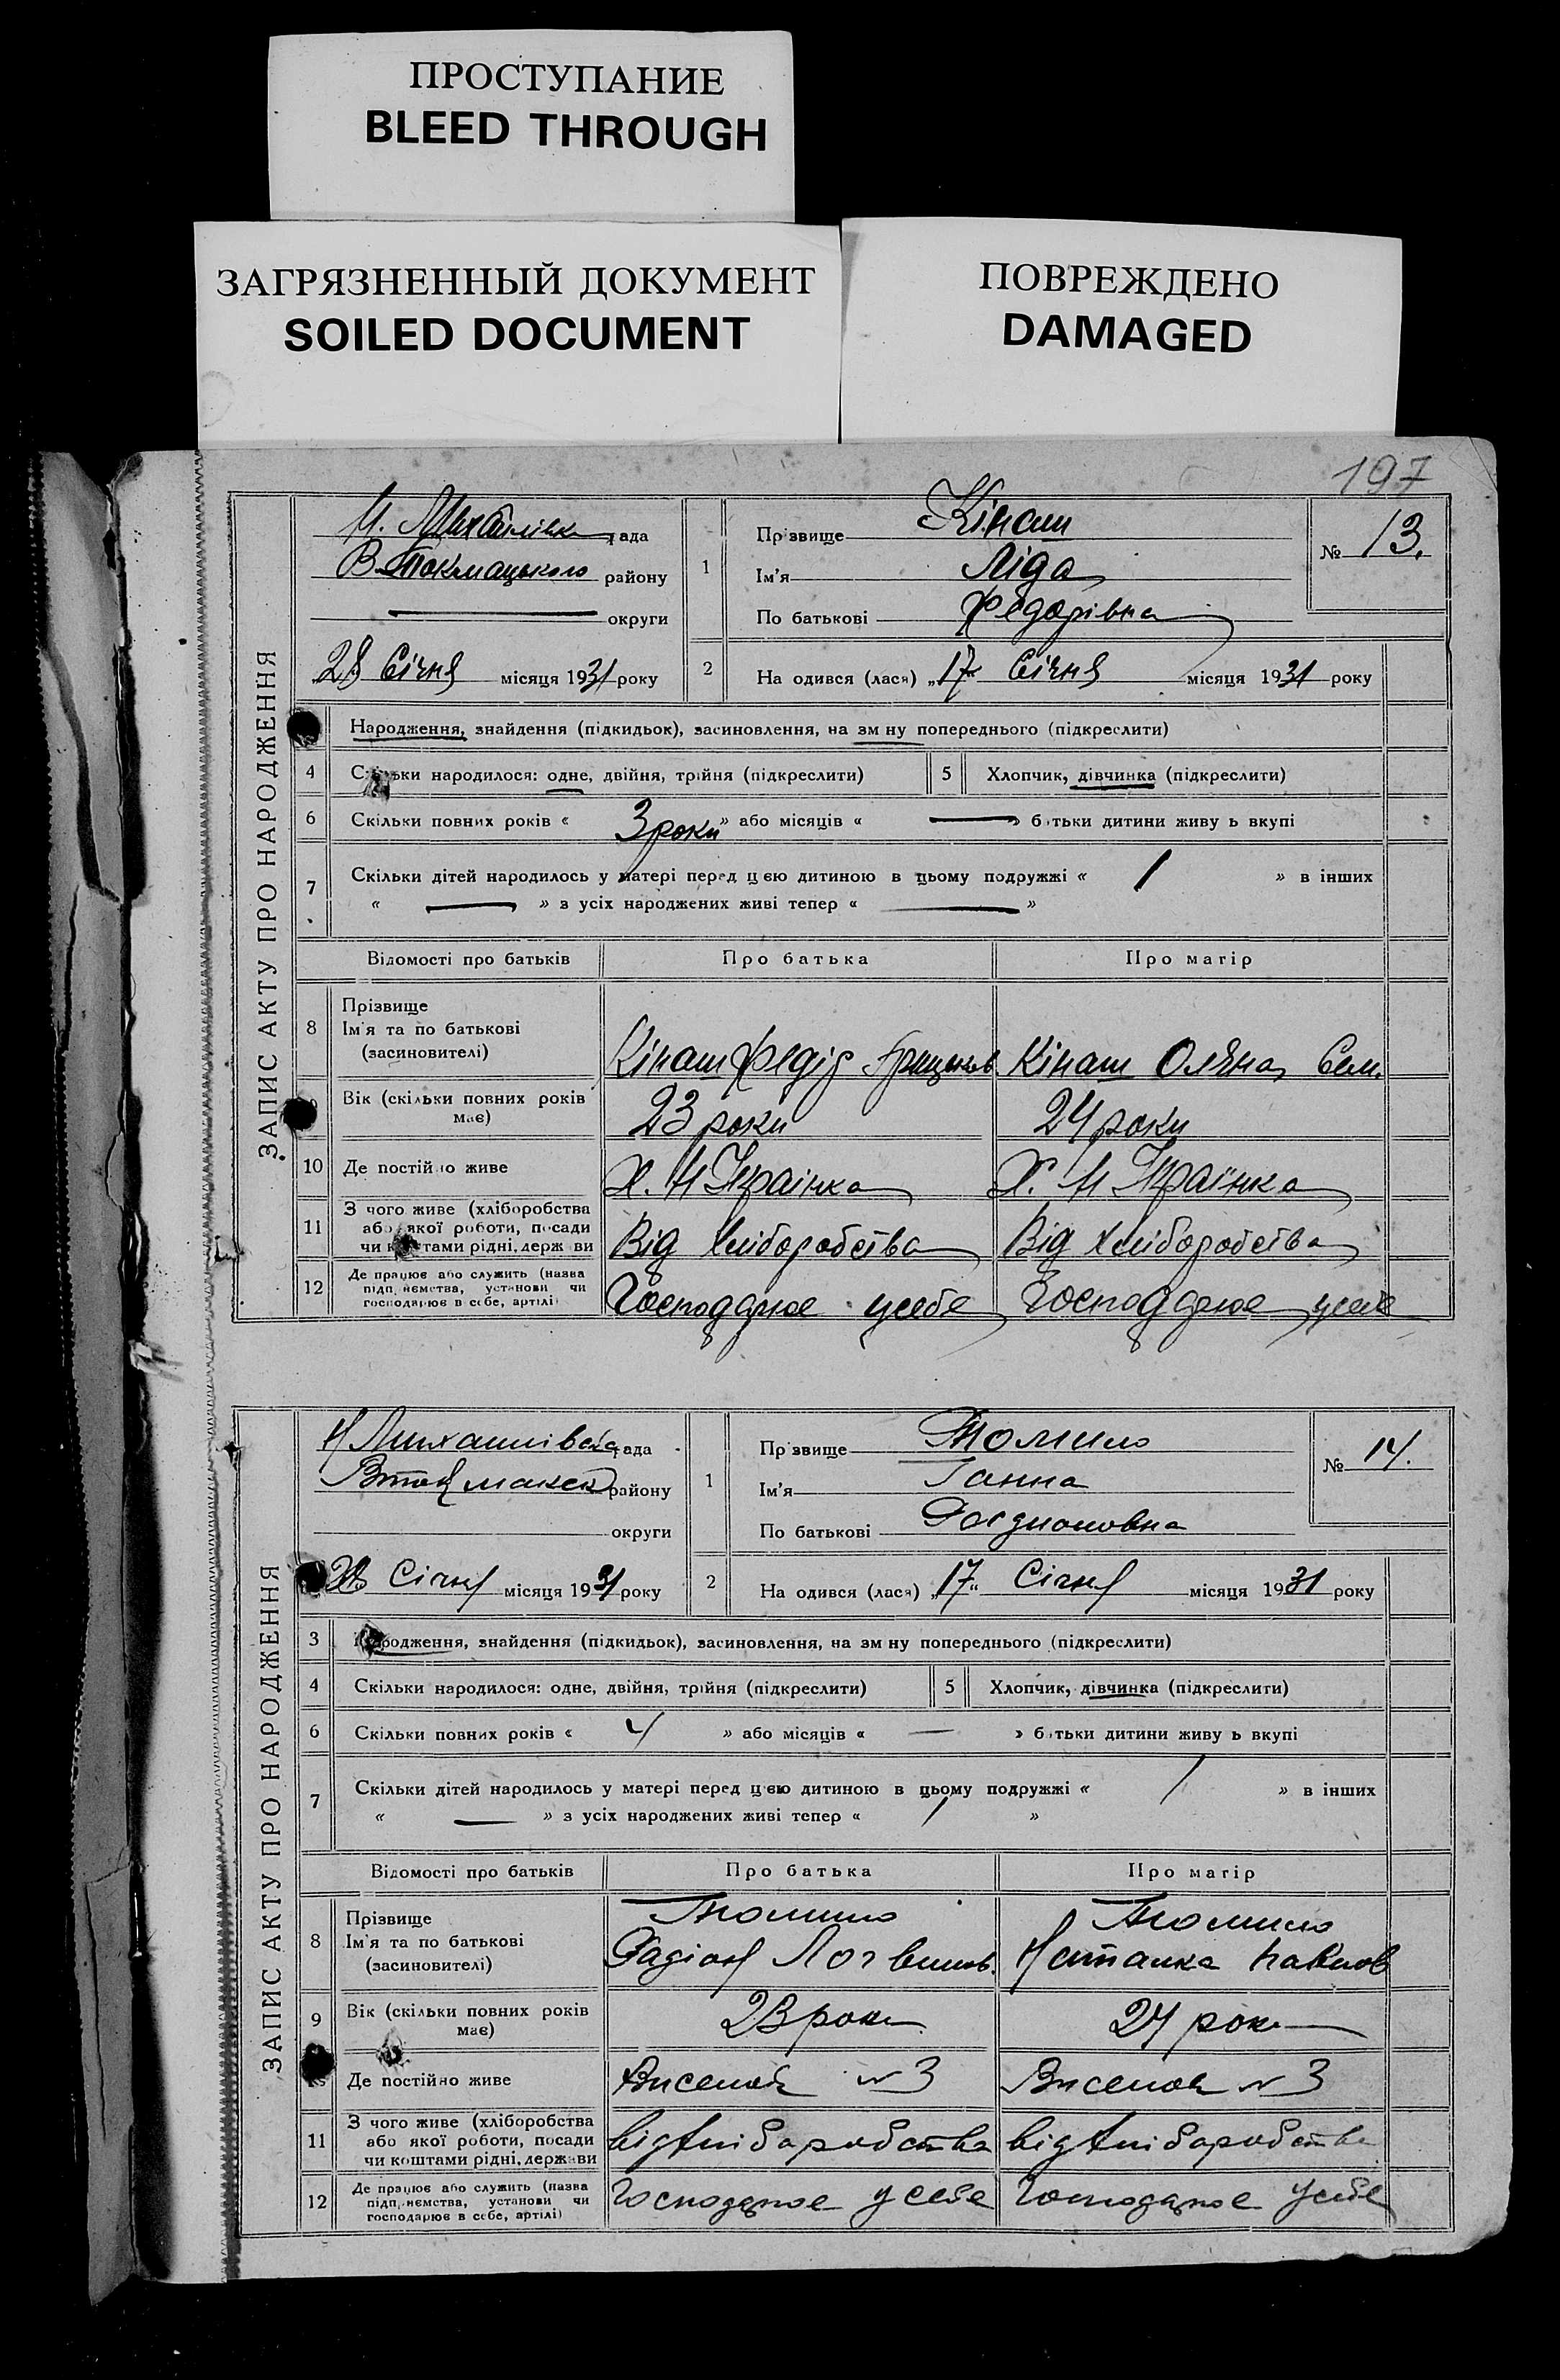 ПРОСТУПАНИЕ
BLEED THROUGH
ЗАГРЯЗНЕННЫЙ ДОКУМЕНТ
SOILED DOCUMENT
ПОВРЕЖДЕНО
DAMAGED
197
ЗАПИС АКТУ ПРО НАРОДЖЕННЯ
Н. Михайлівка рада
В-Токмацького району
округи
28 Січня місяця 1931 року
1
Прізвище Кінаш
Ім'я Ліда
По батькові Федорівна
№ 13.
2 На одився (лася) „17" Січня місяця 1931 року
Народження, знайдення (підкидьок), засиновлення, на зм ну попереднього (підкреслити)
4 Скільки народилося: одне, двійня, трійня (підкреслити)
5 Хлопчик, дівчинка (підкреслити)
6 Скільки повних років « 3 роки » або місяців « — » батьки дитини живу ь вкупі
7 Скільки дітей народилось у матері перед цією дитиною в цьому подружжі « 1 » в інших
« — » з усіх народжених живі тепер « — »
Відомості про батьків Про батька Про матір
8 Прізвище
Ім'я та по батькові
(засиновителі)
Кінаш Федір Кінаш Оляна Сем.
Вік (скільки повних років
має)
23 роки 24 роки
10 Де постійно живе Х. Н Українка Х. Н Українка
11 З чого живе (хліборобства
або якої роботи, посади
чи коштами рідні, держ ви
Від хліборобства Від хліборобства
12 Де працює або служить (назва
підп. иємства, установи чи
господарює в себе, артілі)
Господарює у себе Господарює у себе
ЗАПИС АКТУ ПРО НАРОДЖЕННЯ
Н Михайлівська рада
району
округи
28 Січня місяця 1931 року
1
Прізвище Томило
Ім'я Ганна
По батькові
№ 14.
2 На одився (лася) „17" Січня місяця 1931 року
3 Народження, знайдення (підкидьок), засиновлення, на зм ну попереднього (підкреслити)
4 Скільки народилося: одне, двійня, трійня (підкреслити)
5 Хлопчик, дівчинка (підкреслити)
6 Скільки повних років « 4 » або місяців « — » батьки дитини живу ь вкупі
7 Скільки дітей народилось у матері перед цією дитиною в цьому подружжі « 1 » в інших
« — » з усіх народжених живі тепер « 1 »
Відомості про батьків Про батька Про матір
8 Прізвище
Ім'я та по батькові
(засиновителі)
Томило Томило
Радіон Логвинов. Наталка Павлов
9 Вік (скільки повних років
має)
23 роки 24 роки
Де постійно живе Виселок № 3 Виселок № 3
11 З чого живе (хліборобства
або якої роботи, посади
чи коштами рідні, держави
від хліборобства від хліборобства
12 Де працює або служить (назва
підп. иємства, установи чи
господарює в себе, артілі)
господарює у себе господарює у себе